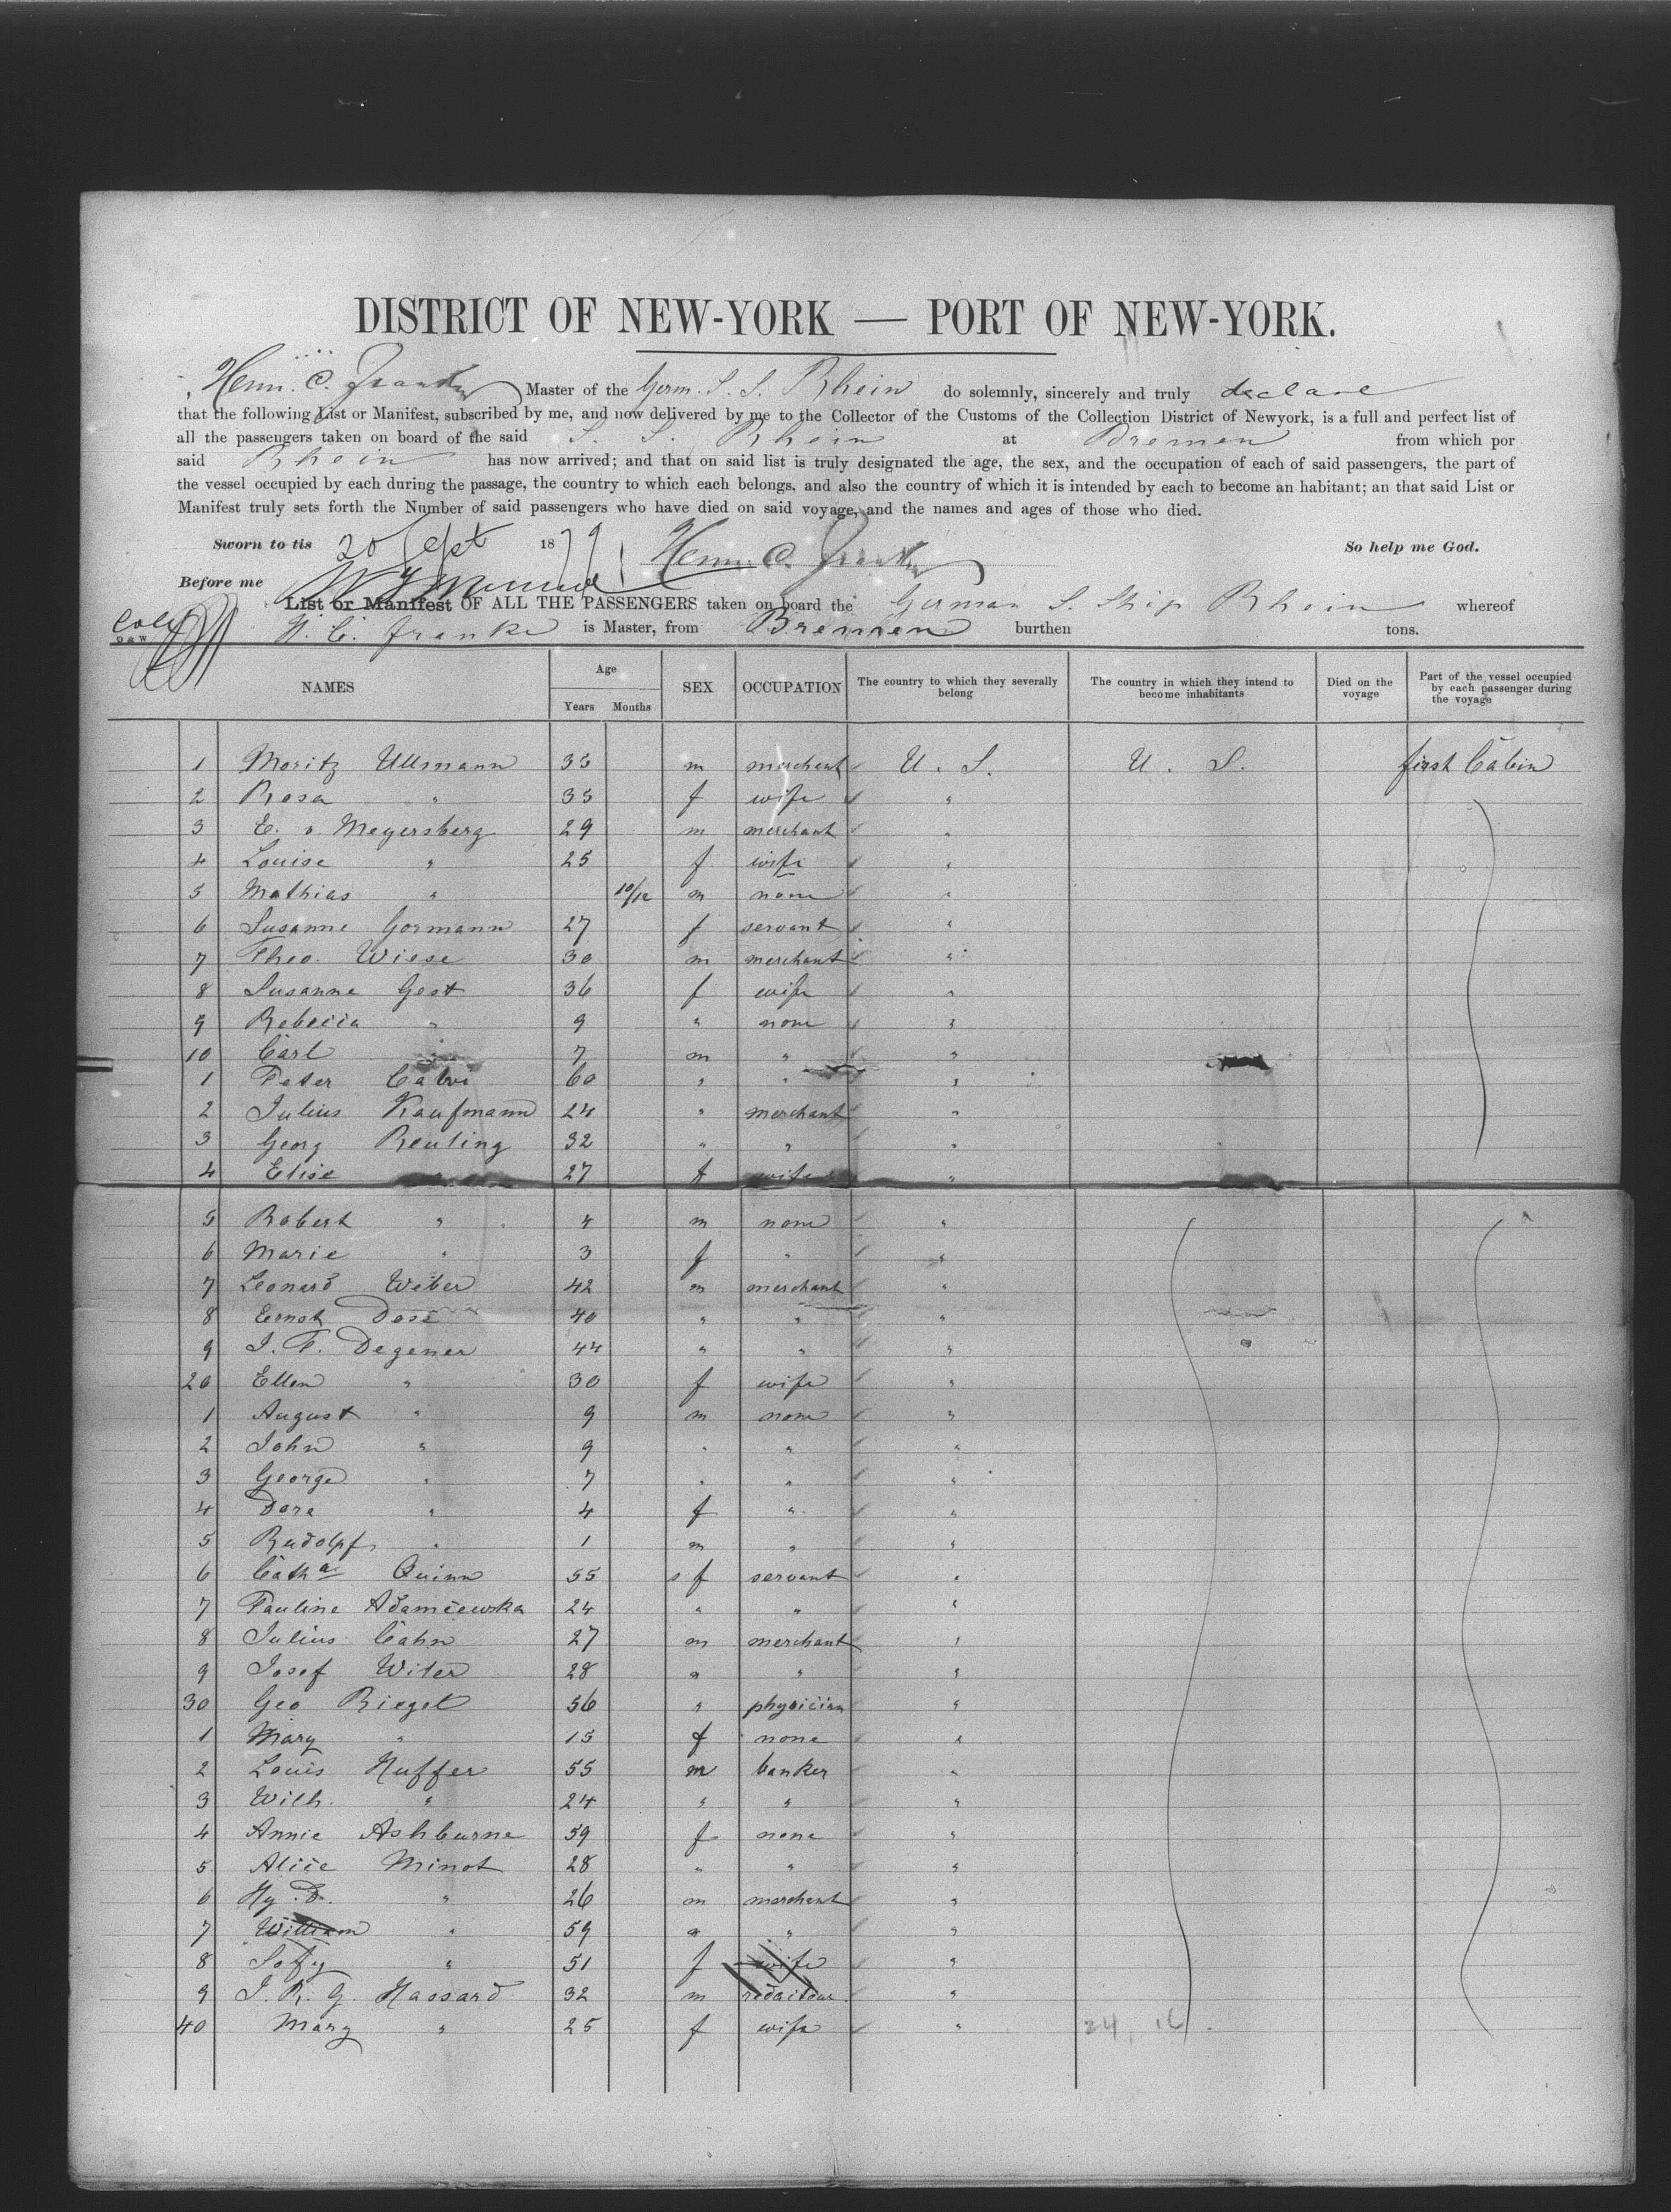 DISTRICT OF NEW-YORK — PORT OF NEW-YORK.
Henn. C. Franke Master of the Germ. S. S. Rhein do solemnly, sincerely and truly declare
that the following List or Manifest, subscribed by me, and now delivered by me to the Collector of the Customs of the Collection District of Newyork, is a full and perfect list of
all the passengers taken on board of the said S. S. Rhein at Bremen from which por
said Rhein has now arrived; and that on said list is truly designated the age, the sex, and the occupation of each of said passengers, the part of
the vessel occupied by each during the passage, the country to which each belongs, and also the country of which it is intended by each to become an habitant; an that said List or
Manifest truly sets forth the Number of said passengers who have died on said voyage, and the names and ages of those who died.
Sworn to tis 20 Sept 1879 Henn. C. Franke So help me God.
Before me
List or Manifest OF ALL THE PASSENGERS taken on board the German S. Ship Rhein whereof
H. C. Franke is Master, from Bremen burthen tons.
NAMES Age Years Months SEX OCCUPATION The country to which they severally belong The country in which they intend to become inhabitants Died on the voyage Part of the vessel occupied by each passenger during the voyage
1 Moritz Ullmann 33 m merchant U. S. U. S. first Cabin
2 Rosa " 33 f wife "
3 E. v. Meyersberg 29 m merchant "
4 Louise " 25 f wife "
5 Mathias " 10/12 m none "
6 Susanne Gormann 27 f servant "
7 Theo. Wiese 30 m merchant "
8 Susanne Gest 36 f wife "
9 Rebecca " 9 " none "
10 Carl " 7 m " "
1 Peter 60 " " "
2 Julius Kaufmann 24 " merchant "
3 Georg Reuling 32 " " "
4 Elise " 27 f wife "
5 Robert " 4 m none "
6 Marie " 3 f " "
7 Leonard Weber 42 m merchant "
8 Ernst Dose 40 " " "
9 J. F. Degener 44 " " "
20 Ellen " 30 f wife "
1 August " 9 m none "
2 John " 9 " " "
3 George " 7 " " "
4 Dora " 4 f " "
5 Rudolpf " 1 m " "
6 Catha Quinn 55 f servant "
7 Pauline Adamcewska 24 " " "
8 Julius Cahn 27 m merchant "
9 Josef Witer 28 " " "
30 Geo Riegel 56 " physician "
1 Mary " 15 f none "
2 Louis Huffer 55 m banker "
3 Wilh. " 24 " " "
4 Annie Ashburne 59 f none "
5 Alice Minot 28 " " "
6 Hy. D. " 26 m merchant "
7 William " 59 " " "
8 Sofy " 51 f wife "
9 J. R. G. Hassard 32 m redacteur "
40 Mary " 25 f wife " 24, 16